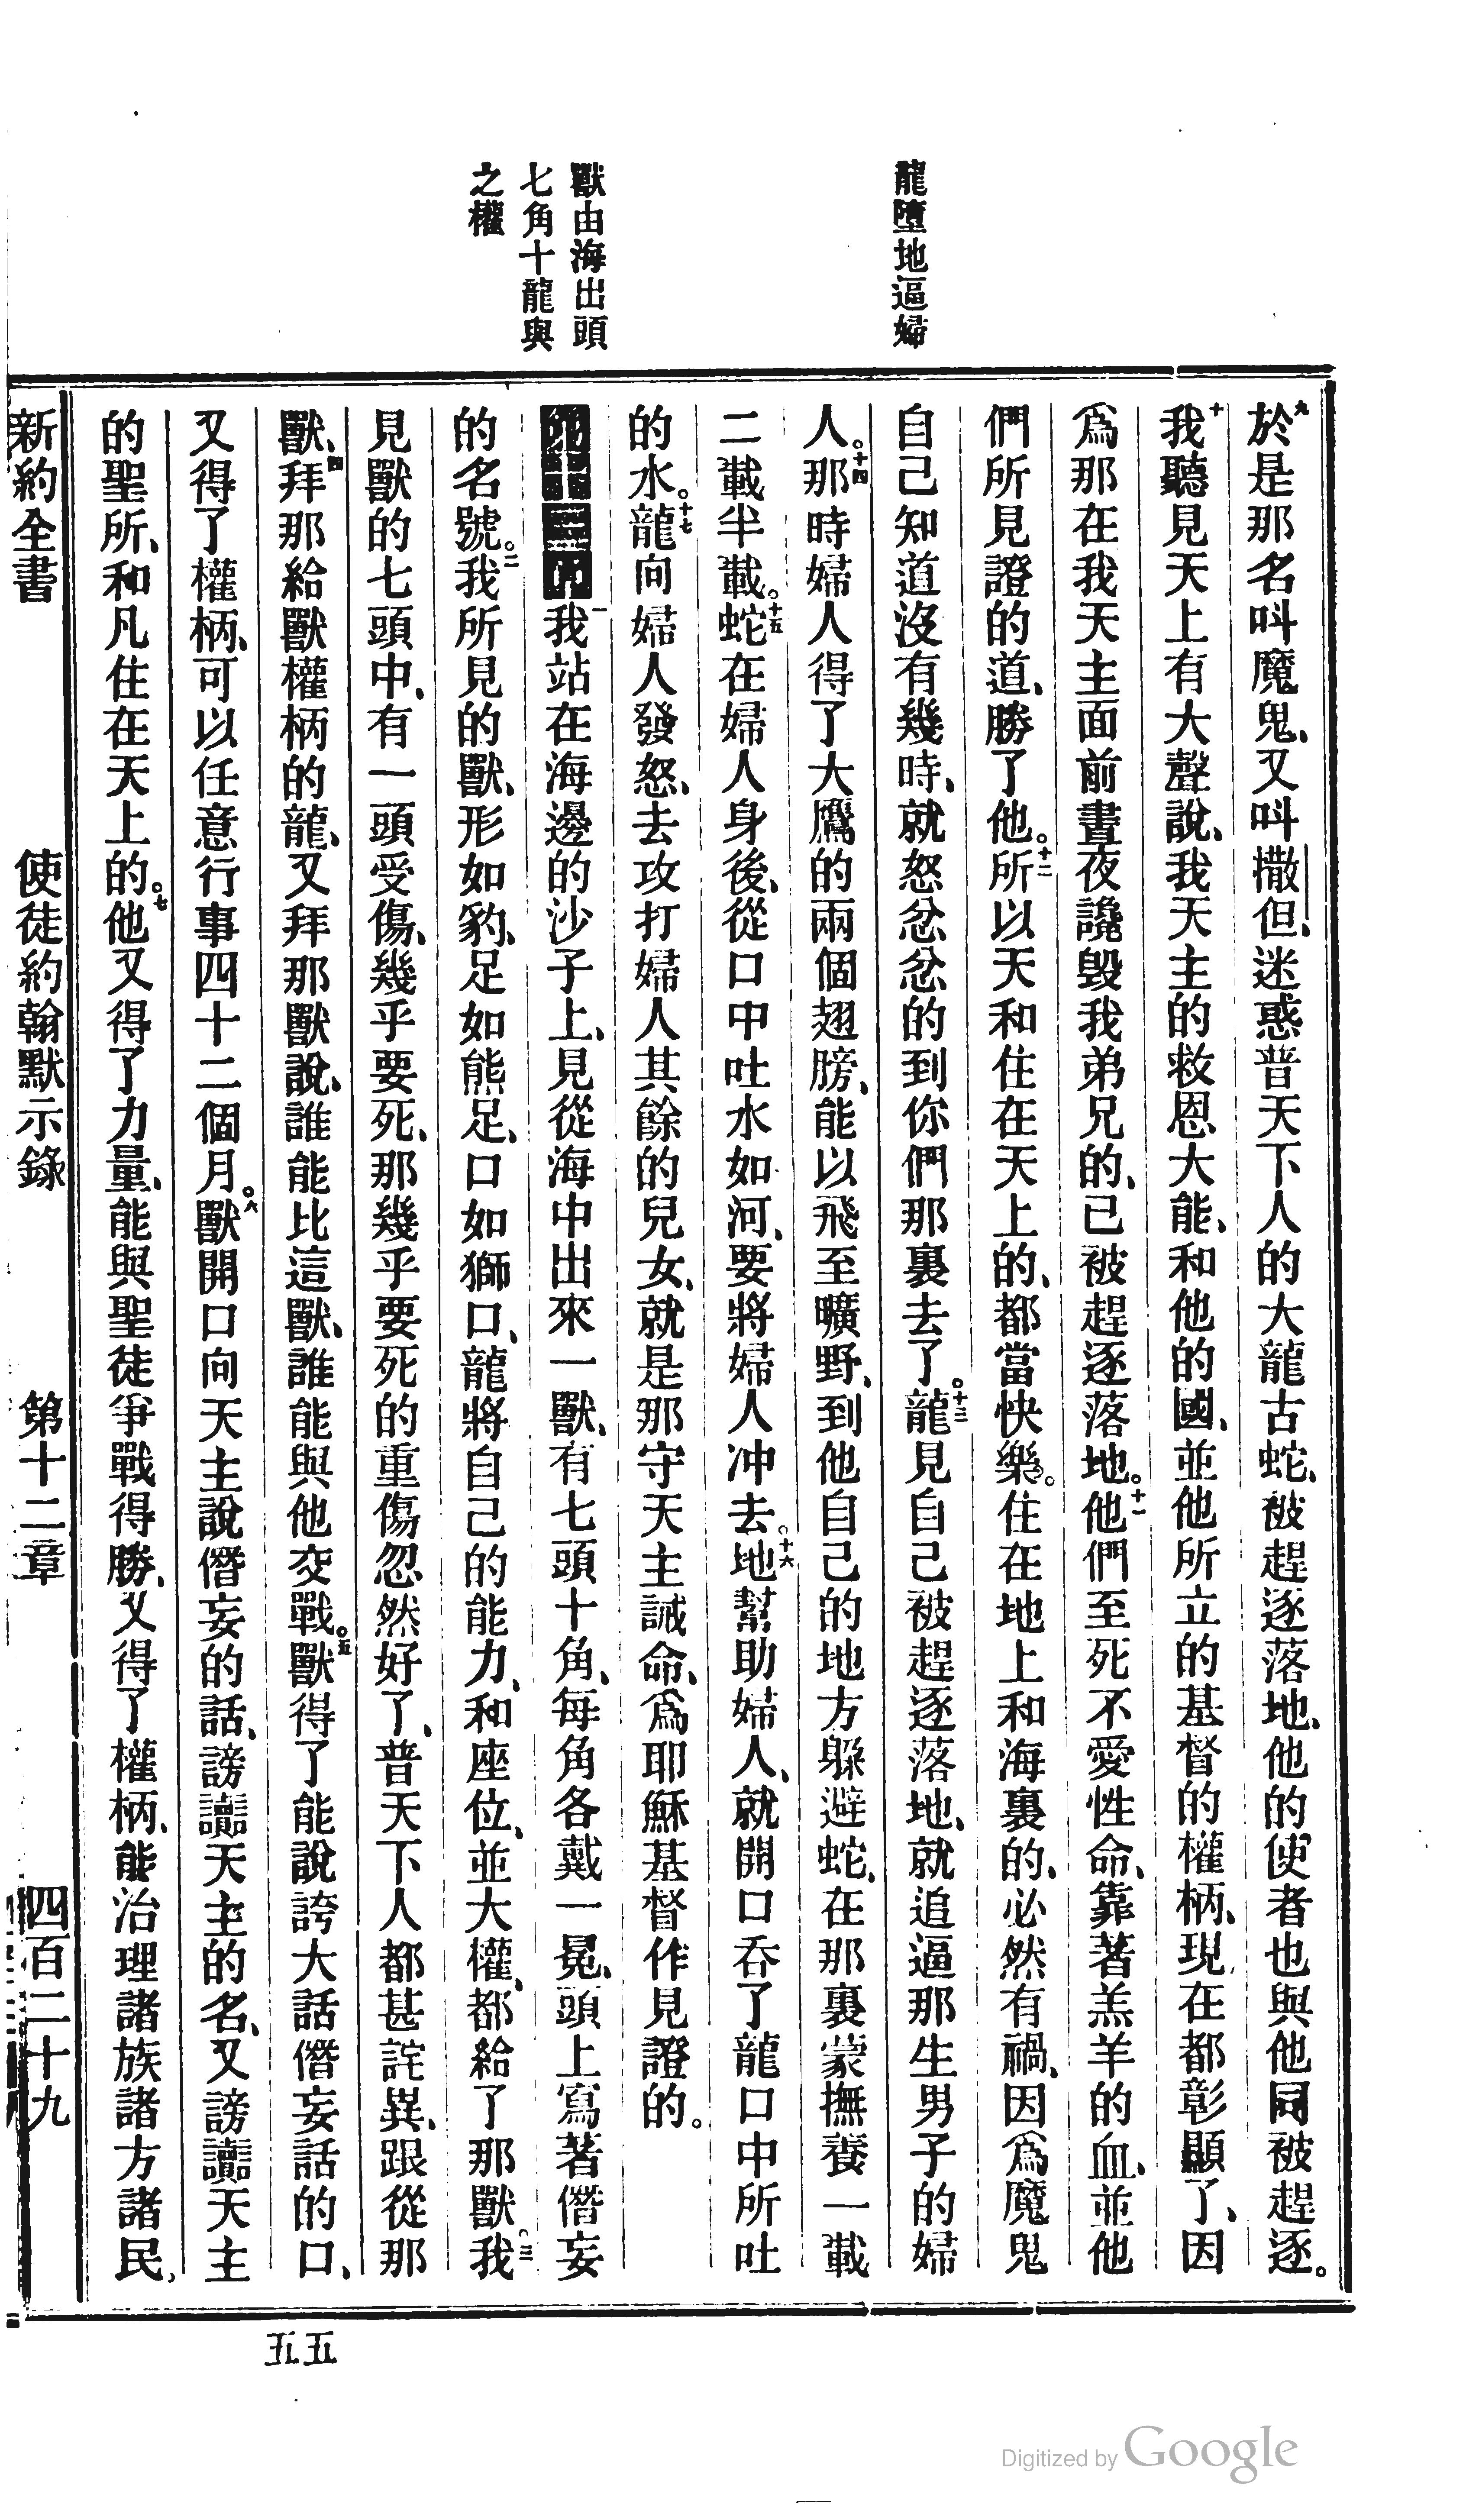 龍墮地逼婦
獸由海出頭
七角十龍與
之權
九於是那名叫魔鬼、又叫撒但、迷惑普天下人的大龍古蛇、被趕逐落地、他的使者也與他同被趕逐。
十我聽見天上有大聲說、我天主的救恩大能、和他的國、並他所立的基督的權柄、現在都彰顯了、因
爲那在我天主面前晝夜讒毀我弟兄的、已被趕逐落地。十一他們至死不愛性命、靠著羔羊的血、並他
們所見證的道、勝了他。十二所以天和住在天上的、都當快樂。住在地上和海裏的、必然有禍、因爲魔鬼
自己知道沒有幾時、就怒忿忿的到你們那裏去了。十三龍見自己被趕逐落地、就追逼那生男子的婦
人。十四那時婦人得了大鷹的兩個翅膀、能以飛至曠野、到他自己的地方躲避蛇、在那裏蒙撫養一載
二載半載。十五蛇在婦人身後、從口中吐水如河、要將婦人冲去。十六地幫助婦人、就開口吞了龍口中所吐
的水。十七龍向婦人發怒、去攻打婦人其餘的兒女、就是那守天主誡命、爲耶穌基督作見證的。
一我站在海邊的沙子上、見從海中出來一獸、有七頭十角、每角各戴一冕、頭上寫著僭妄
的名號。二我所見的獸、形如豹、足如熊足、口如獅口、龍將自己的能力、和座位、並大權、都給了那獸。三我
見獸的七頭中、有一頭受傷、幾乎要死、那幾乎要死的重傷忽然好了、普天下人都甚詫異、跟從那
獸、四拜那給獸權柄的龍、又拜那獸說、誰能比這獸、誰能與他交戰。五獸得了能說誇大話僭妄話的口、
又得了權柄、可以任意行事四十二個月。六獸開口向天主說僭妄的話、謗讟天主的名、又謗讟天主
的聖所、和凡住在天上的。七他又得了力量、能與聖徒爭戰得勝、又得了權柄、能治理諸族諸方諸民、
新約全書 使徒約翰默示錄 第十二章 四百二十九
五五
Digitized by Google